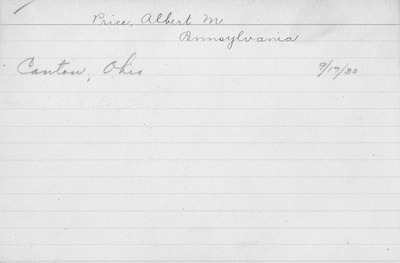 Price, Albert M.
Pennsylvania
Canton, Ohio 9/17/30